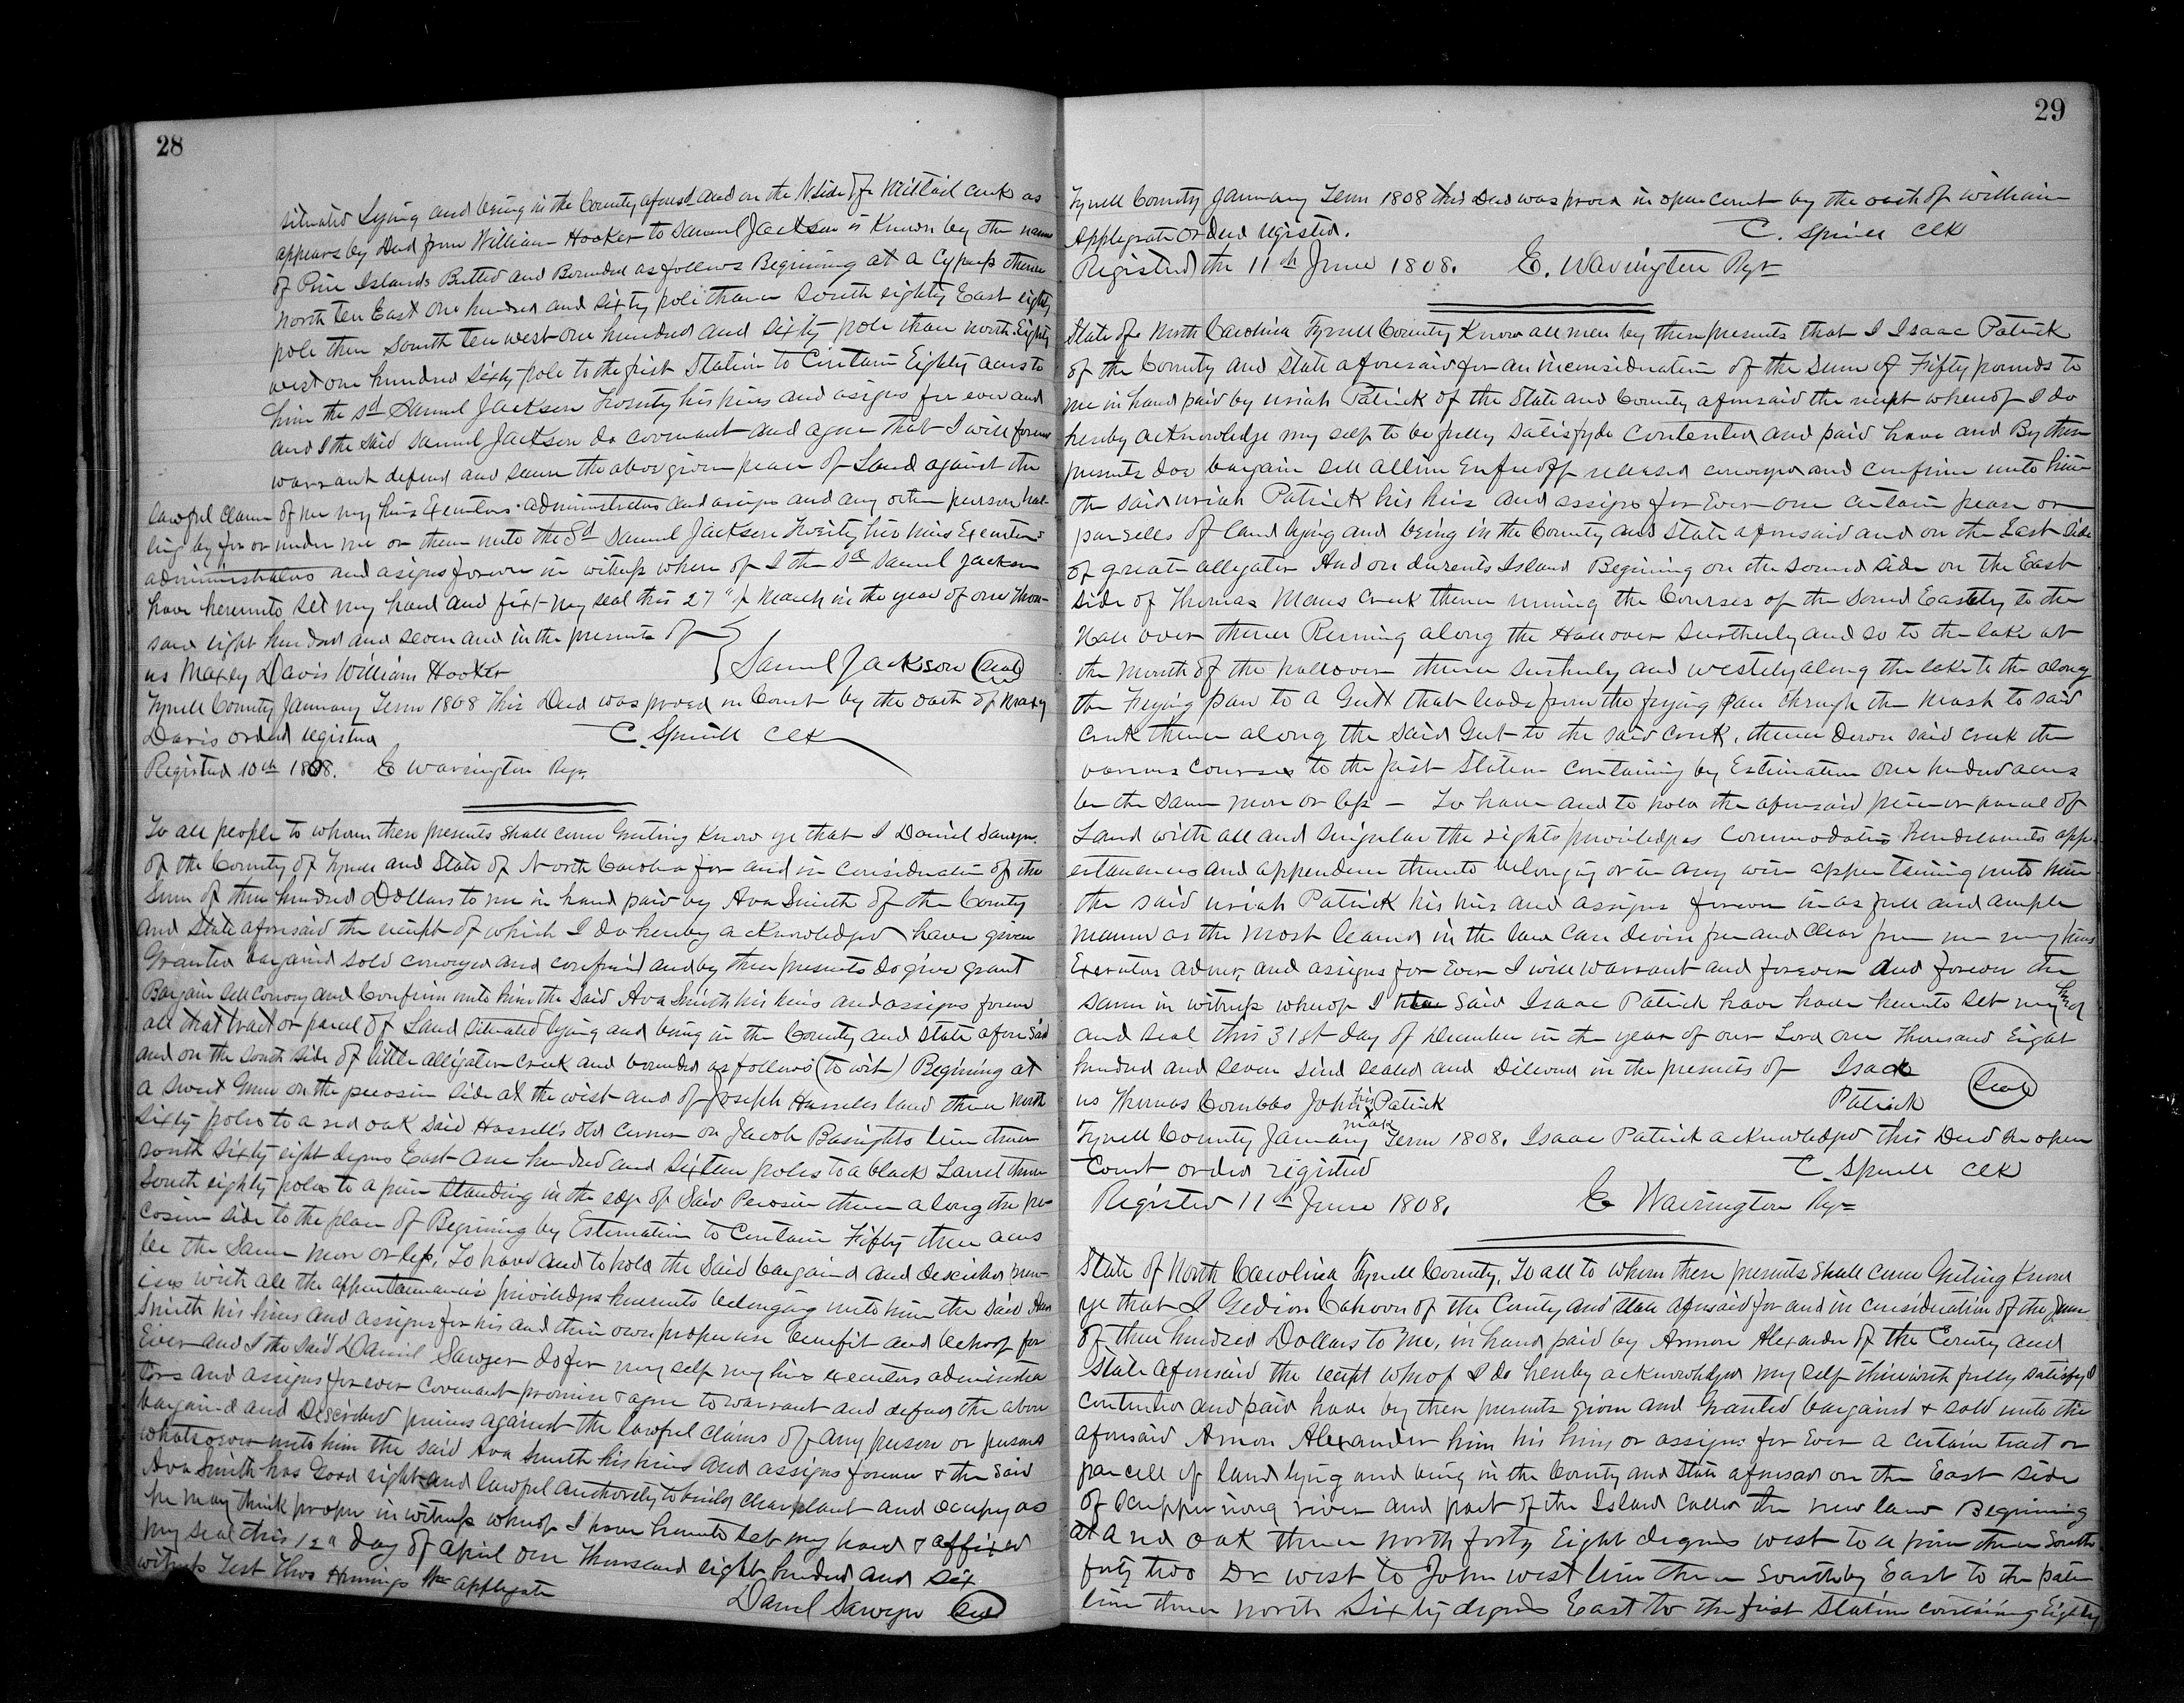 28
situated Lying and being in the County aforesd and on the N side of Milltail creek as
appears by Deed from William Hooker to Samuel Jackson is Known by the name
of Pine Islands Butted and Bounded as follows Begining at a Cypress thence
North ten East one hundred and sixty pole thence South eighty East eighty
pole then South ten west one hundred and sixty pole thence north Eighty
west one hundred sixty pole to the first Station to Contain Eighty acres to
him the sd Samuel Jackson Twenty his heirs and asigns for ever and
and I the said Samuel Jackson do covenant and agree that I will forever
warrant defend and secure the above given peace of Land against the
lawful claim of me my heirs Executors administrators and asigns and any other person
ling by for or under me or them unto the Sd Samuel Jackson Twenty his heirs Executors
administrators and asigns forever in witness where of I the sd Samuel Jackson
have hereunto set my hand and fixt my seal this 27" of March in the year of one thou-
sand eight hundred and seven and in the presents of
us Maxey Davis William Hooker Samuel Jackson (seal)
Tyrrell County January Term 1808 This Deed was proved in Court by the oath of Maxey
Davis orderd registred C. Spruill Clk
Registed 10th 1808. E Warrington Regr.
To all people to whom these presents shall come Greeting Know ye that I Daniel Sawyer
of the County of Tyrrell and State of North Carolina for and in Consideration of the
Sum of three hundred Dollars to me in hand paid by Ava Smith of the County
and State aforesaid the receipt of which I do hereby acknowledged have given
Granted bargaind sold conveyed and confirmd and by these presents do give grant
Bargain sell convey and Confirm unto him the Said Ava Smith his heirs and assigns forever
all that tract or parcel of Land situated lying and being in the County and State afore Said
and on the South side of little alligator creek and bounded as follows (to wit) Begining at
a sweet Gum on the pecosin side at the west end of Joseph Hassels land thence North
Sixty poles to a red oak said Hassell's old corner on Jacob Basnights line thence
South Sixty eight degrees East one hundred and Sixteen poles to a black Larrel thence
South eighty poles to a pine Standing in the edge of Said Pecosin thence along the pe-
cosin side to the place of Begining by Estimation to Contain Fifty three acres
be the Same more or less. To have and to hold the Said bargaind and Described prem-
ises with all the appurtenances priviledges hereunto belonging unto him the said Ava
Smith his heirs and assigns for his and their own proper use benefit and behoof for
Ever and I the said Daniel Sawyer do for my self my heirs executors administra
tors and assigns for ever Covenant promise & agree to warrant and defend the above
bargaind and Described premises against the lawful claims of any person or persons
whatsoever unto him the said Ava Smith his heirs and assigns forever & the said
Ava Smith has Good right and lawful authority to build clear plant and occupy as
he may think proper in witness whereof I have hereunto set my hand & affixed
my seal this 12th day of april one thousand eight hundred and six
witness Test Thos Hennings Wm applegate
Daniel Sawyer (Seal)
29
Tyrrell County January Term 1808 this Deed was proved in open Court by the oath of william
Applegate Orderd registred. C. Spruill Clk
Registred the 11th June 1808. E. Warrington Regr
State of North Carolina Tyrrell County Know all men by these presents that I Isaac Patrick
of the County and State aforesaid for an inconsideration of the Sum of Fifty pounds to
me in hand paid by uriah Patrick of the State and County aforesaid the receipt whereof I do
hereby acknowledge my self to be fully satisfyde contented and paid have and By these
presents doe bargain sell allien Enfeeoff released conveyed and confirm unto him
the said uriah Patrick his heirs and assigns for Ever one certain pease or
parsells of land lying and being in the County and State aforesaid and on the East side
of great allegator And on durents Island Begining on the sound side on the East
side of Thomas Manns creek thence runing the Courses of the Sound Eastely to the
Hall over thence Running along the Hallover Southerly and so to the lake at
the mouth of the hallover thence Southerly and westely along the lake to the along
the Frying pan to a Gutt that leads from the frying pan through the mash to said
creek thence along the said Gut to the said creek, thence Down said creek the
various courses to the first station containing by Estimation One hundred acres
be the same more or less - To have and to hold the aforesaid peice or parcel of
Land with all and Singular the rights priviledges commodaties hereditaments app-
ertanances and appendence thereto belonging or in any wise appertaining unto him
the said uriah Patrick his heirs and assigns forever in as full and ample
manner as the most learned in the law can devise free and clear from me my heirs
Executors admrs, and assigns for Ever I will warrant and forever and forever the
same in witness whereof I the said Isaac Patrick have have hereunto set my hand
and seal this 31st day of December in the year of our Lord one thousand Eight
hundred and seven sind sealed and Dilivered in the presents of Isaac
us Thomas Combbs John his x mark Patrick Patrick (Seal)
Tyrrell County January Term 1808. Isaac Patrick acknowledged this Deed in open
Court orderd registred C. Spruill Clk
Registred 11th June 1808. E Warrington Regr
State of North Carolina Tyrrell County, To all to whom these presents shall come Greeting Know
ye that I Gedion Cahoon of the County and State aforesaid for and in consideration of the sum
of three hundred Dollars to me, in hand paid by Armon Alexander of the County and
State aforesaid the receipt whereof I do hereby acknowledged my self therewith fully satisfyd
contented and paid have by these presents given and Granted bargaind & sold unto the
aforesaid Armon Alexander him his heirs or assigns for Ever a certain tract or
parcell of land lying and being in the County and State aforesaid on the East side
of Scuppernong river and part of the Island called the new land Beginning
at a red oak thence north forty Eight degrees west to a pine thence South
forty two Dr west to John west line thence South by East to the paten
line thence north Sixty degrees East to the first Station containing Eighty